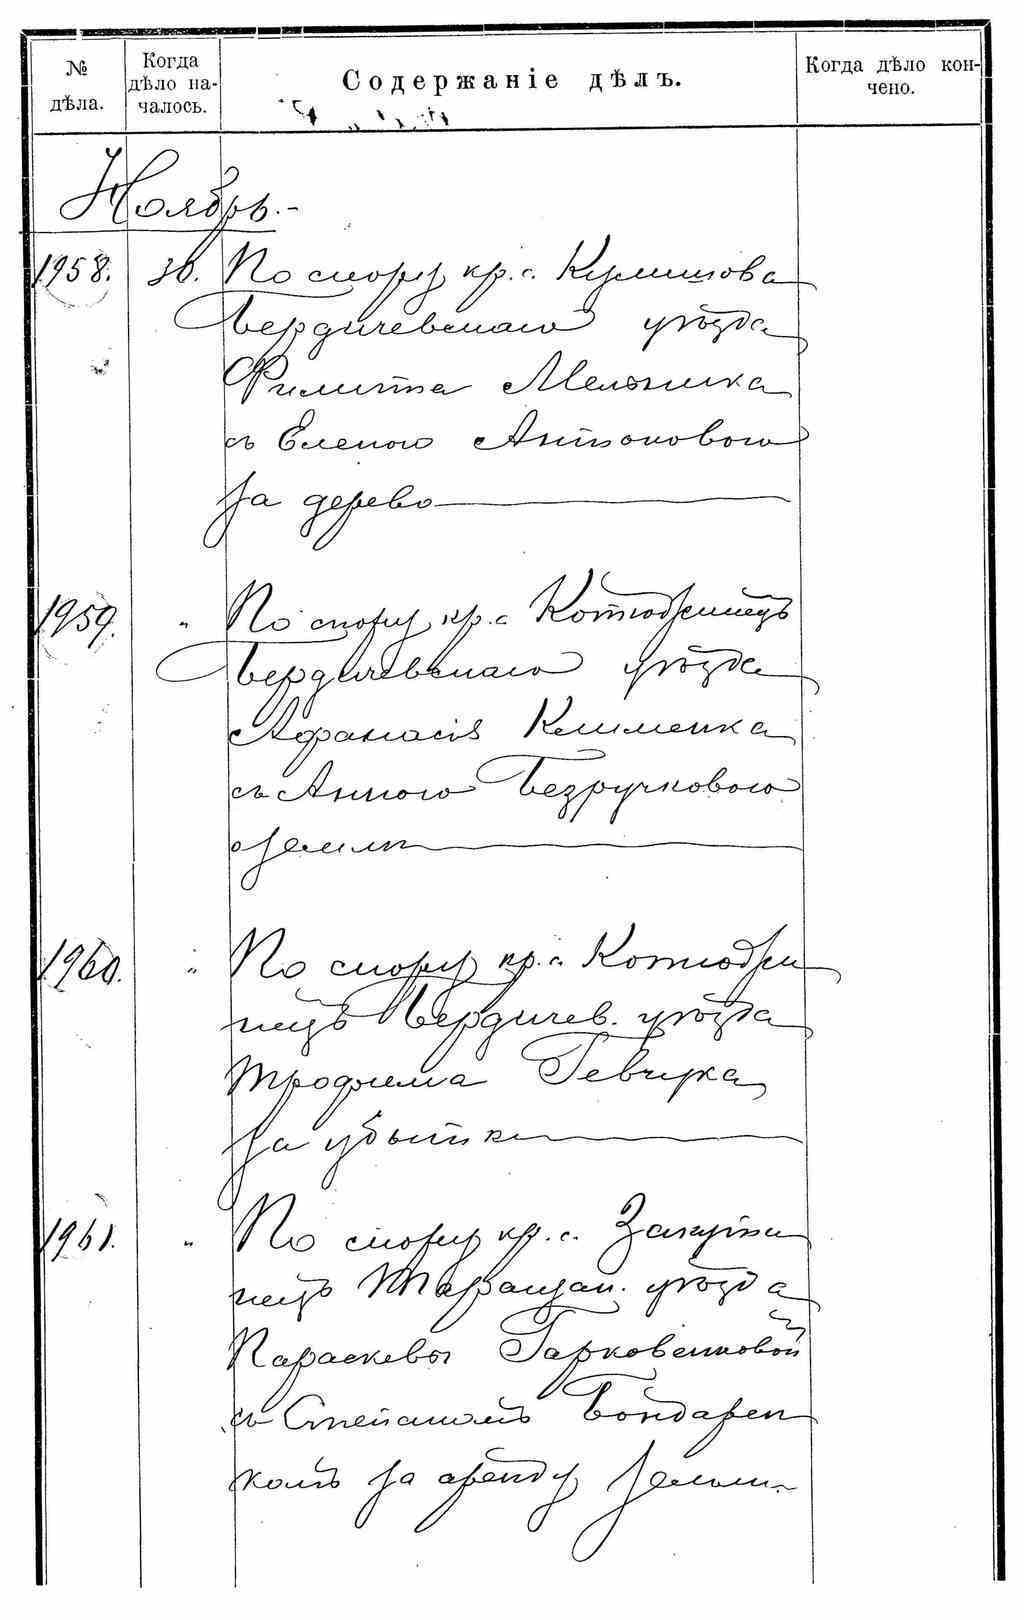 № дѣла.
Когда дѣло началось.
Содержаніе дѣлъ.
Когда дѣло кончено.
Ноябрь.-
1958. 30. По спору кр. с. Кулишова
Бердичевскаго уѣзда
Филиппа Мельника
съ Еленою Антоновою
за дерево
1959. " По спору кр. с. Котюжинецъ
Бердичевскаго уѣзда
Афанасія Клименка
съ Анною Безручковою
о землѣ
1960. " По спору кр. с. Котюжи
нецъ Бердичев. уѣзда
Трофима Гевчука
за убытки
1961. " По спору кр. с.
нецъ Таращан. уѣзда
Параскевы
съ Степаномъ Бондарен
комъ за аренду земли.